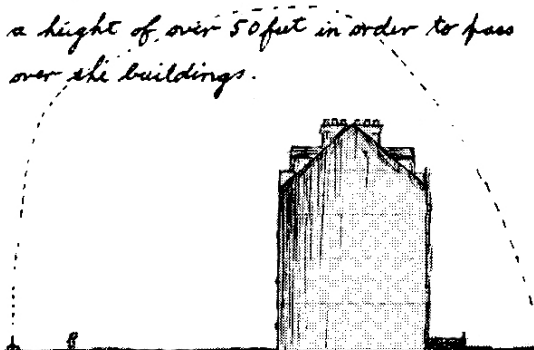 a height of over 50 feet in order to pass
over the buildings.